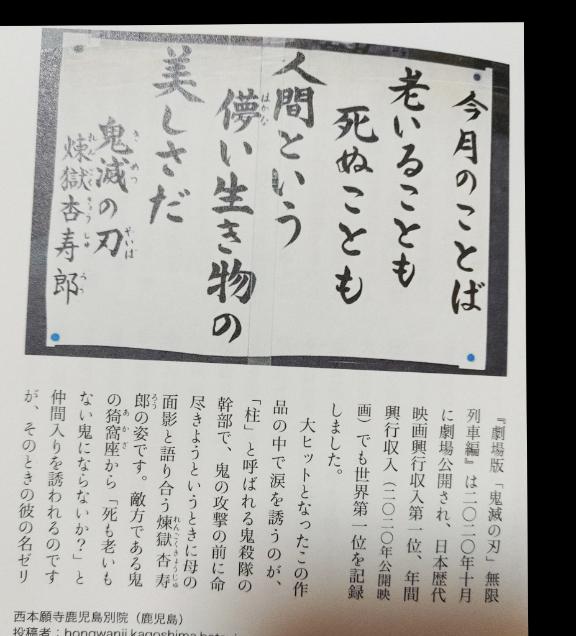 今月のことば
老いることも
死ぬことも
人間という
儚い生き物の
美しさだ
鬼滅の刃
煉獄杏寿郎
『劇場版「鬼滅の刃」無限
列車編』は二〇二〇年十月
に劇場公開され、日本歴代
映画興行収入第一位、年間
興行収入（二〇二〇年公開映
画）でも世界第一位を記録
しました。
大ヒットとなったこの作
品の中で涙を誘うのが、
「柱」と呼ばれる鬼殺隊の
幹部で、鬼の攻撃の前に命
尽きようというときに母の
面影と語り合う煉獄杏寿
郎の姿です。敵方である鬼
の猗窩座から「死も老いも
ない鬼にならないか？」と
仲間入りを誘われるのです
が、そのときの彼の名ゼリ
西本願寺鹿児島別院（鹿児島）
投稿者：hongwanji.kagoshima.bets